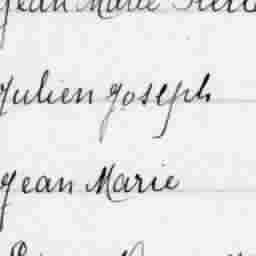 Jean Marie
Julien Joseph
Jean Marie